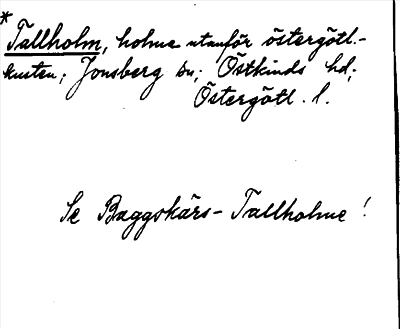 *
Tallholm, holme utanför östergötl.-
kusten; Jonsberg sn; Östkinds hd;
Östergötl. l.
Se Baggskärs-Tallholme!